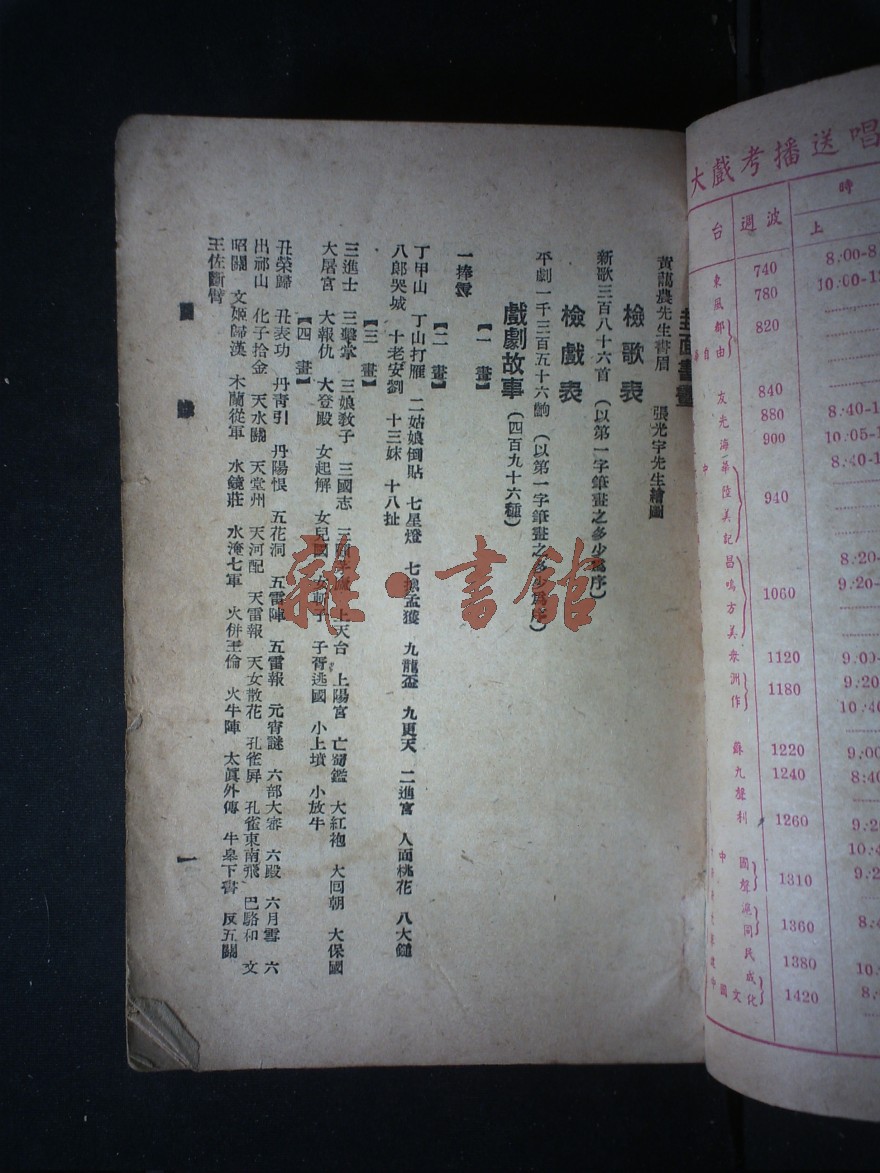 封面書畫
黃藹農先生書眉　張光宇先生繪圖
檢歌表
新歌三百八十六首（以第一字筆畫之多少爲序）
檢戲表
平劇一千三百五十六齣（以第一字筆畫之多少爲序）
戲劇故事（四百九十六種）
【一　畫】
一捧雪
【二　畫】
丁甲山　丁山打雁　二姑娘倒貼　七星燈　七擒孟獲　九龍盃　九更天　二進宮　人面桃花　八大鎚
八郎哭城　十老安劉　十三妹　十八扯
【三　畫】
三進士　三擊掌　三娘敎子　三國志　上天台　上陽宮　亡蜀鑑　大紅袍　大回朝　大保國
大屠宮　大報仇　大登殿　女起解　女兒國　女斬子　子胥逃國　小上墳　小放牛
【四　畫】
丑榮歸　丑表功　丹青引　丹陽恨　五花洞　五雷陣　五雷報　元宵謎　六部大審　六殿　六月雪　六
出祁山　化子拾金　天水關　天堂州　天河配　天雷報　天女散花　孔雀屏　孔雀東南飛　巴駱和　文
昭關　文姬歸漢　木蘭從軍　水鏡莊　水淹七軍　火併王倫　火牛陣　太眞外傳　牛臯下書　反五關
王佐斷臂
目　錄
一
雜·書館
大戲考播送唱
時
台　週波　上
東風　740　8:00-8
780　10:00-1
都由　820
友　840
光　880　8:40-1
海　900　10:05-1
8:40-1
華陸美記　940
8:20-
昌鳴方美　1060　9:20-
1120　9:00-
洲作　1180　9:20
10:40
蘇　1220　9:00
九　1240　8:40
聲利　1260　9:2
10:4
中國聲　1310　9:2
1360　8:4
民　1380　10:
國文化成　1420　8: